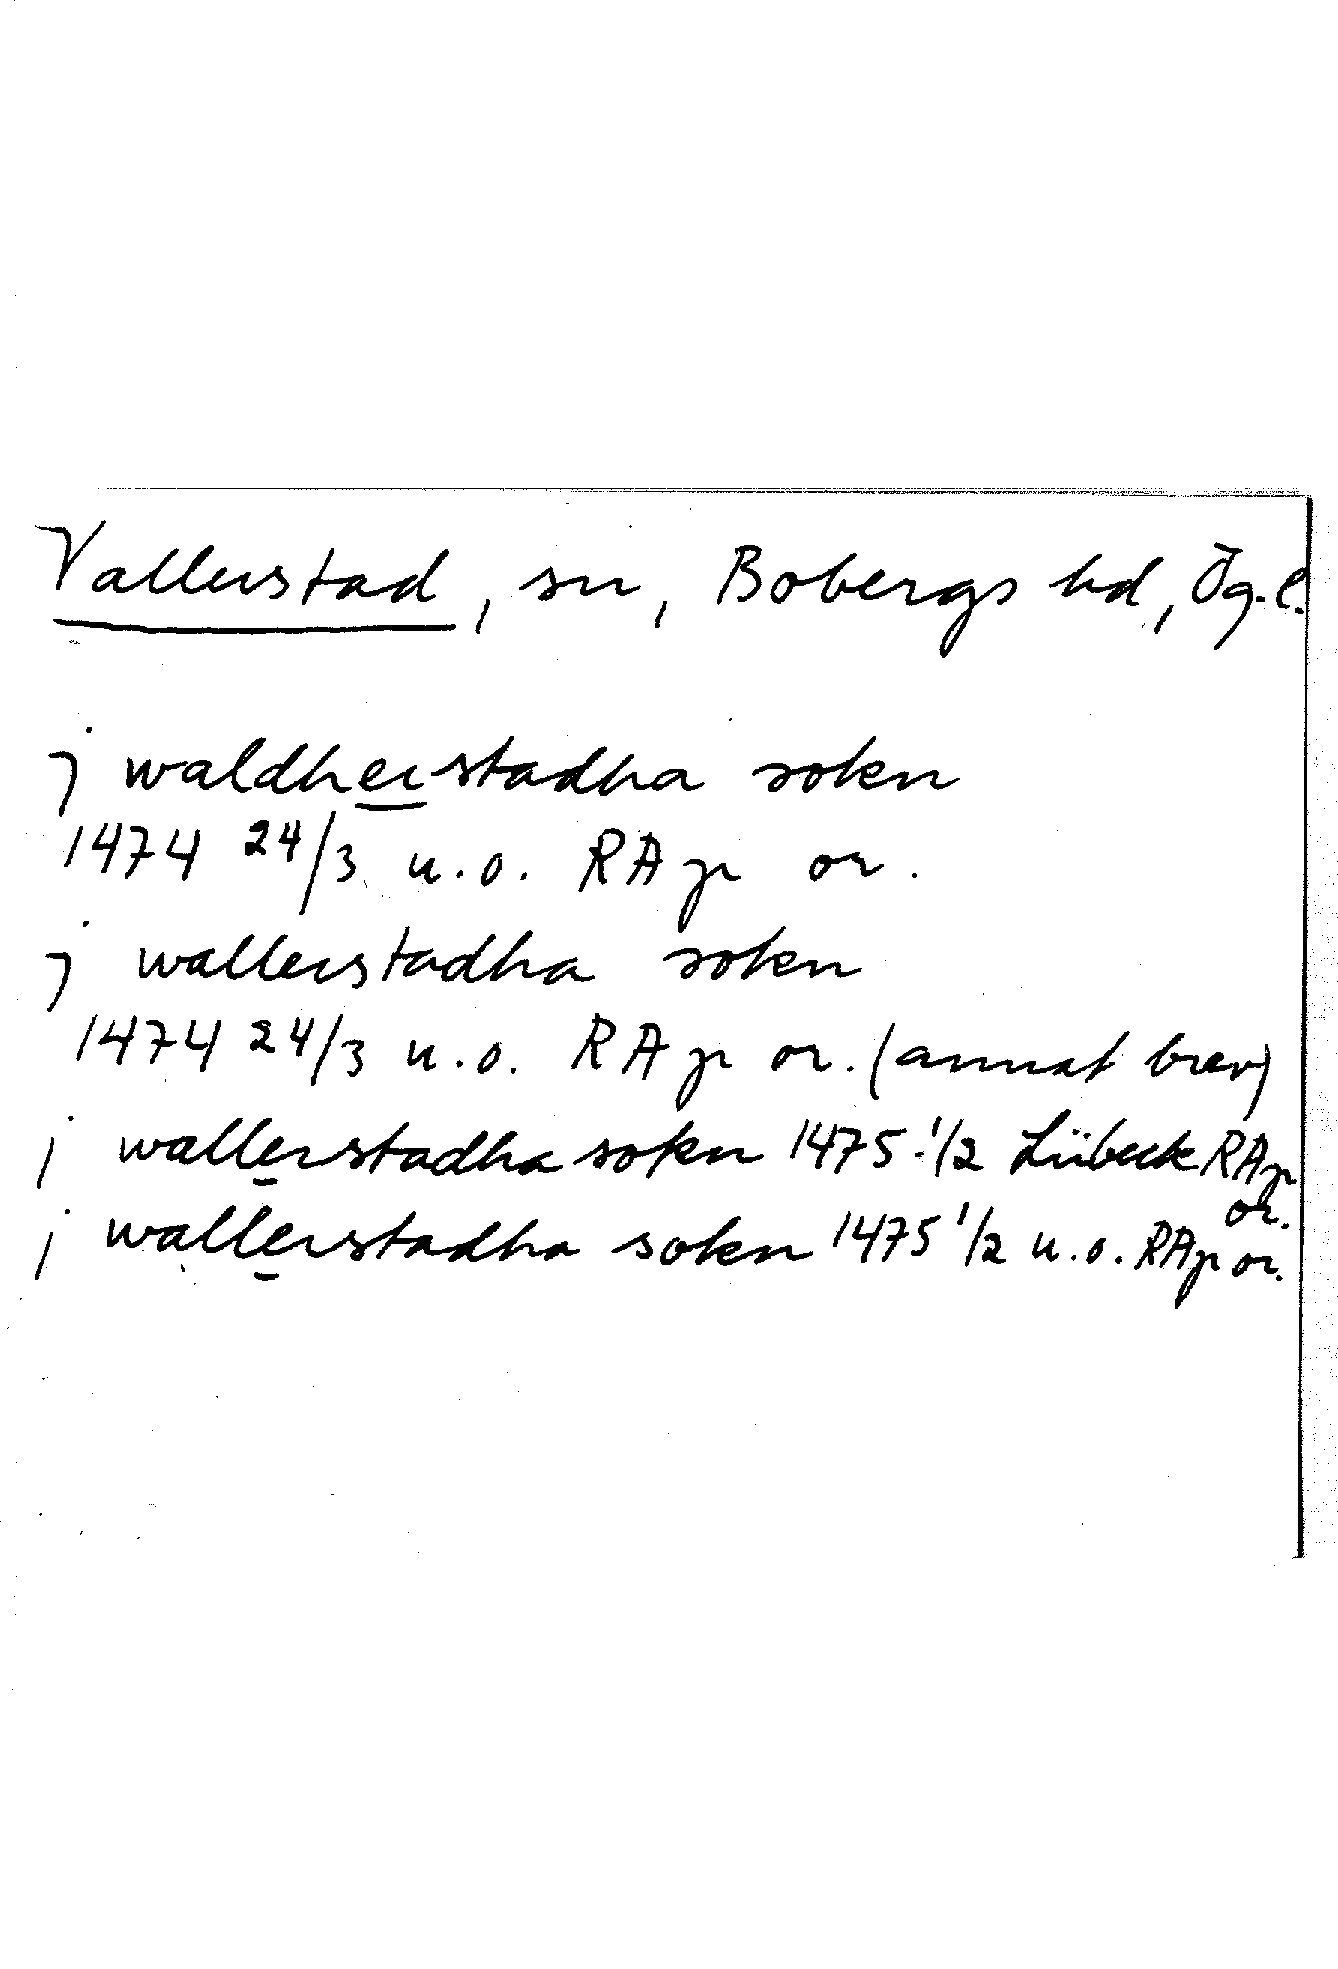 Vallerstad, sn, Bobergs hd, Ög. l.
j waldherstadha sokn
1474 24/3 u.o. RAp or.
j wallerstadha sokn
1474 24/3 u.o. RAp or. (annat brev)
j wallerstadha sokn 1475 1/2 Lübeck RAp
or.
j wallerstadha sokn 1475 1/2 u.o. RAp or.